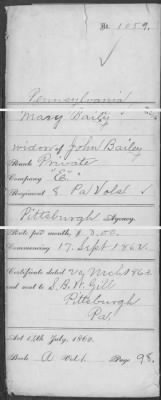 No. 1059.
Pennsylvania
Mary Bailey
widow of John Bailey
Rank Private
Company "E"
Regiment 8 Pa Vols
Pittsburgh Agency.
Rate per month, $ 8.00.
Commencing 17. Sept 1862.
Certificate dated 29 Mch 186
and sent to S. B. W. Gill
Pittsburgh
Pa.
Act 14th July, 1862.
Book A Vol 1 Page 98.